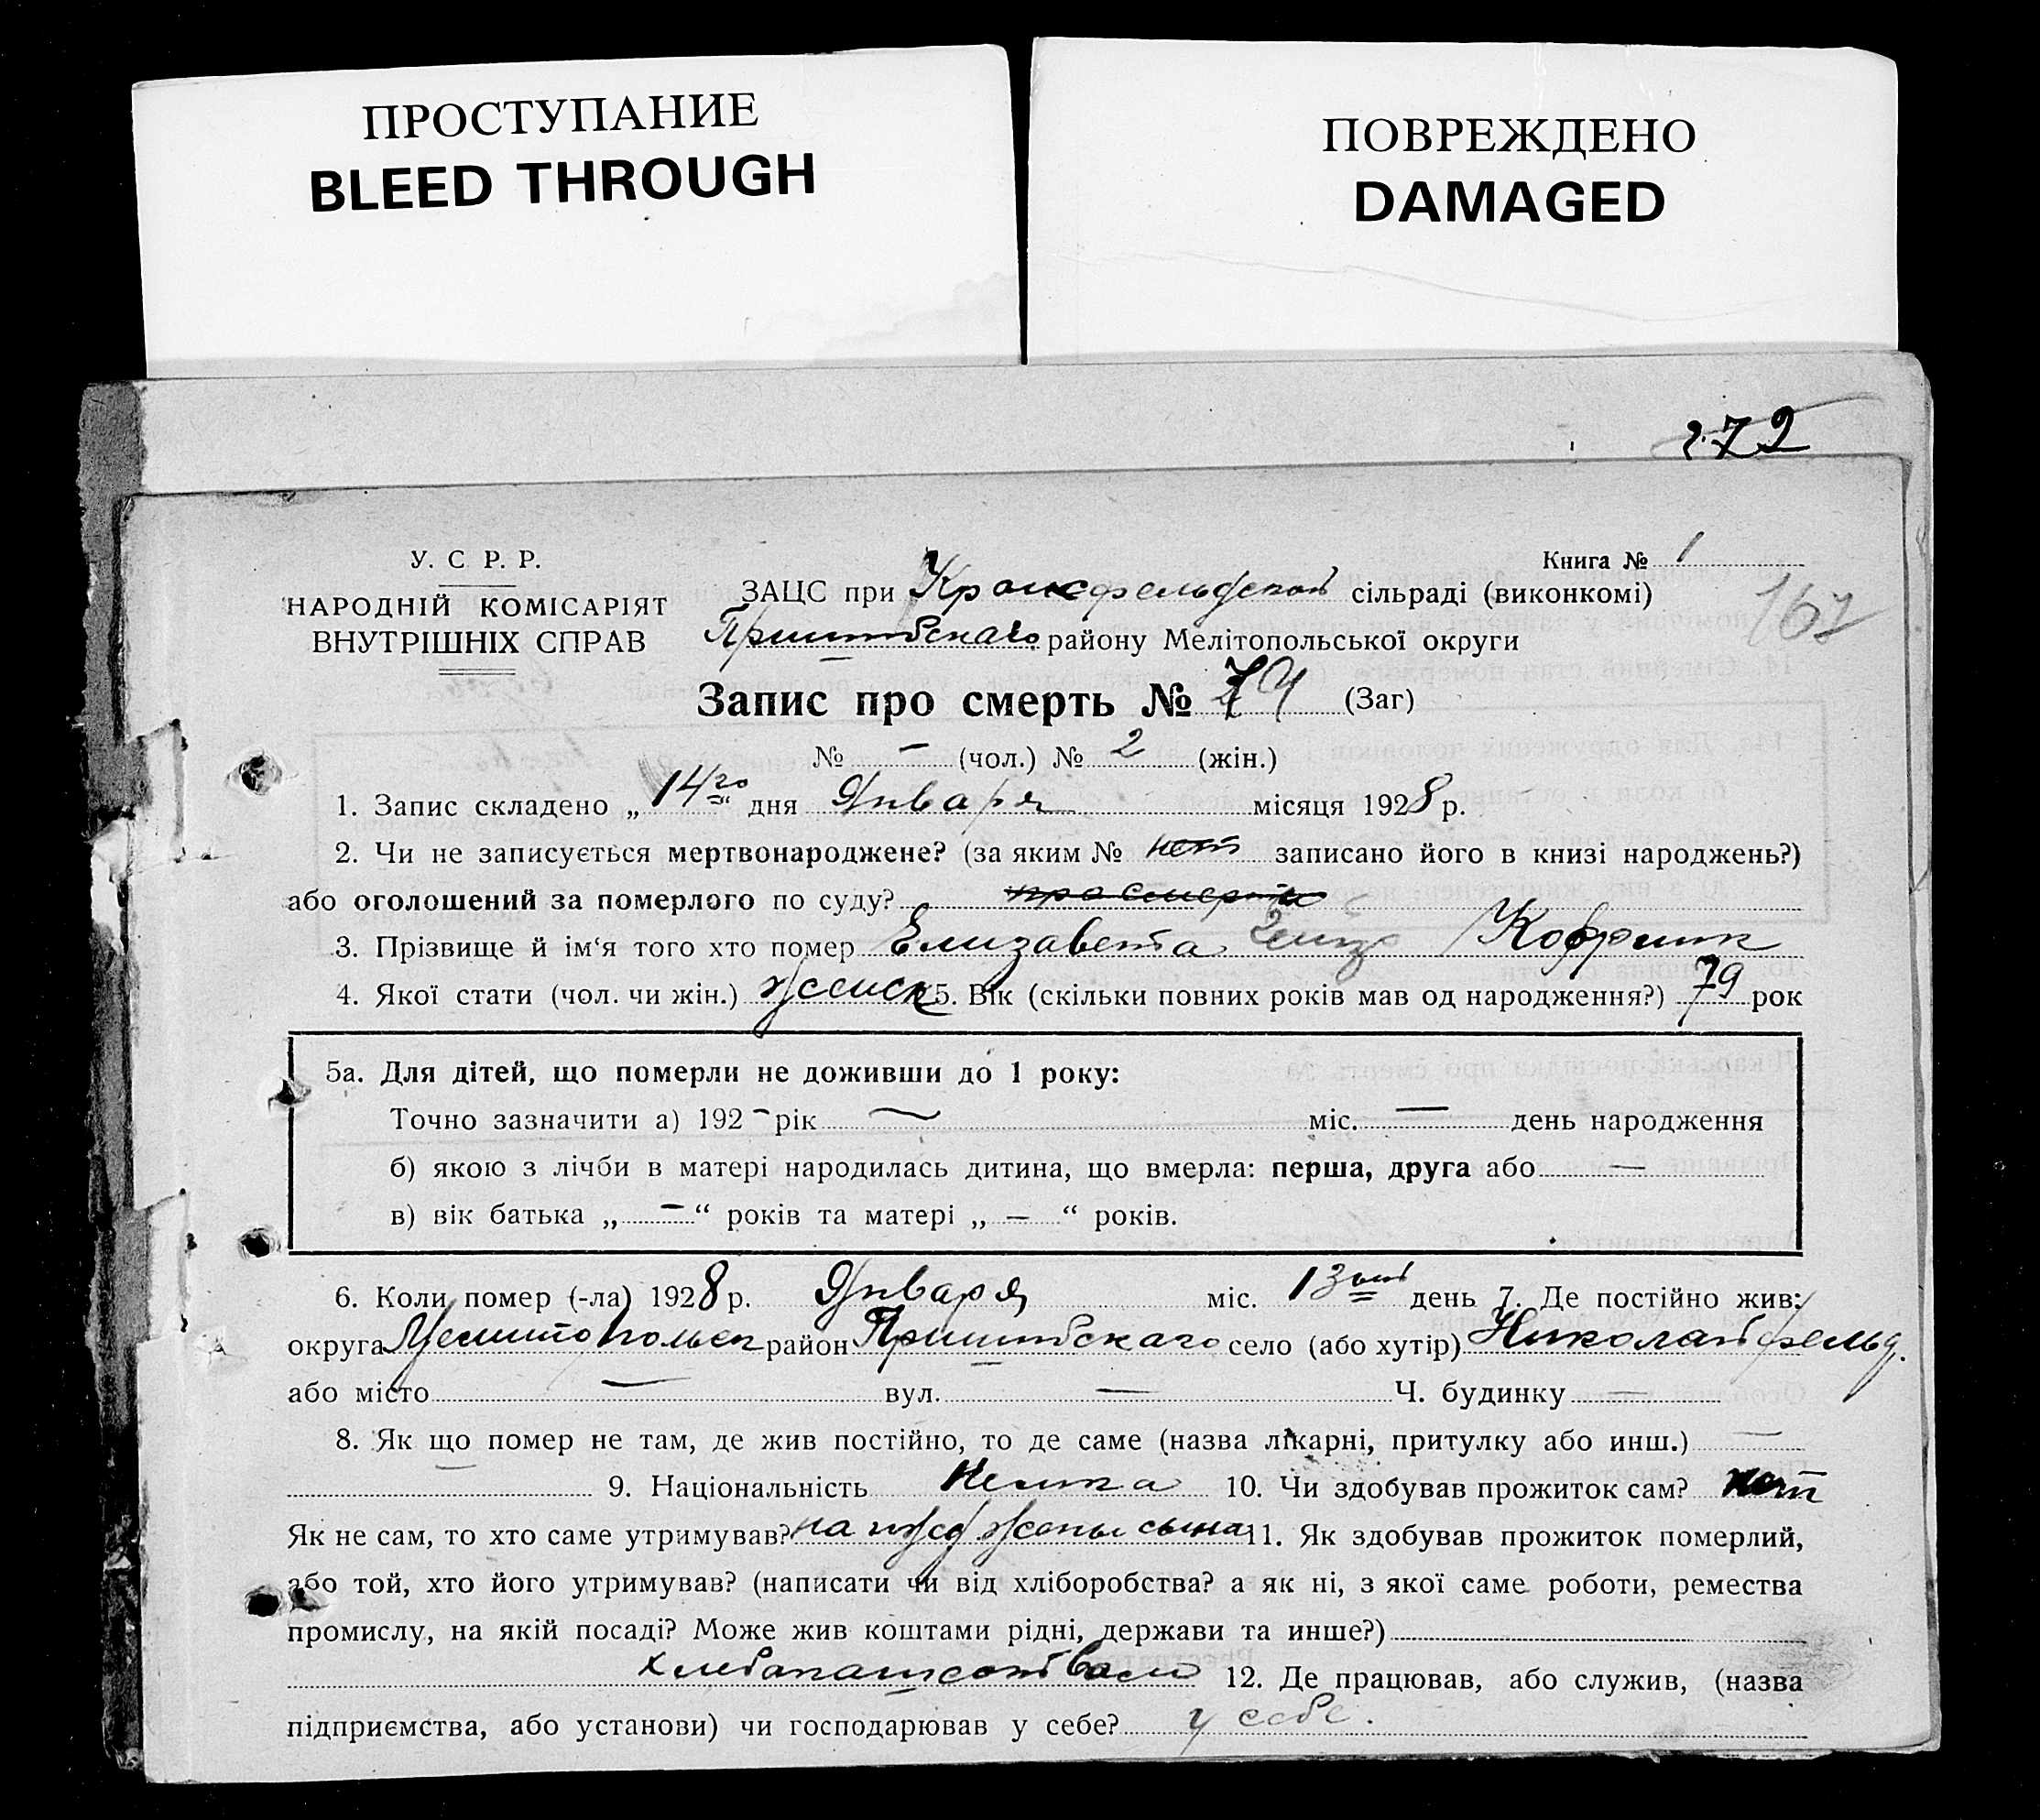 ПРОСТУПАНИЕ
BLEED THROUGH
ПОВРЕЖДЕНО
DAMAGED
272
У. С Р. Р.
НАРОДНІЙ КОМІСАРІЯТ
ВНУТРІШНІХ СПРАВ
Книга № 1
167
ЗАЦС при Кронсфельдской сільраді (виконкомі)
Пришибскаго району Мелітопольської округи
Запис про смерть № (Заг)
№ – (чол.) № 2 (жін.)
1. Запис складено „14го“ дня Января місяця 1928 р.
2. Чи не записується мертвонароджене? (за яким № нет записано його в книзі народжень?)
або оголошений за померлого по суду?
3. Прізвище й ім‘я того хто помер Елизавета
4. Якої стати (чол. чи жін.) женск 5. Вік (скільки повних років мав од народження?) 79 рок
5а. Для дітей, що померли не доживши до 1 року:
Точно зазначити а) 192 – рік — міс. — день народження
б) якою з лічби в матері народилась дитина, що вмерла: перша, друга або —
в) вік батька „ – “ років та матері „ – “ років.
6. Коли помер (-ла) 1928 р. Января міс. 13 день 7. Де постійно жив:
округа Мелитопольск район Пришибскаго село (або хутір) Николайфельд.
або місто — вул. — Ч. будинку —
8. Як що помер не там, де жив постійно, то де саме (назва лікарні, притулку або инш.) —
— 9. Національність Немка 10. Чи здобував прожиток сам? нет
Як не сам, то хто саме утримував? на ижд жены сына 11. Як здобував прожиток померлий,
або той, хто його утримував? (написати чи від хліборобства? а як ні, з якої саме роботи, ремества
промислу, на якій посаді? Може жив коштами рідні, держави та инше?)
хлебопашеством 12. Де працював, або служив, (назва
підприємства, або установи) чи господарював у себе? у себе.